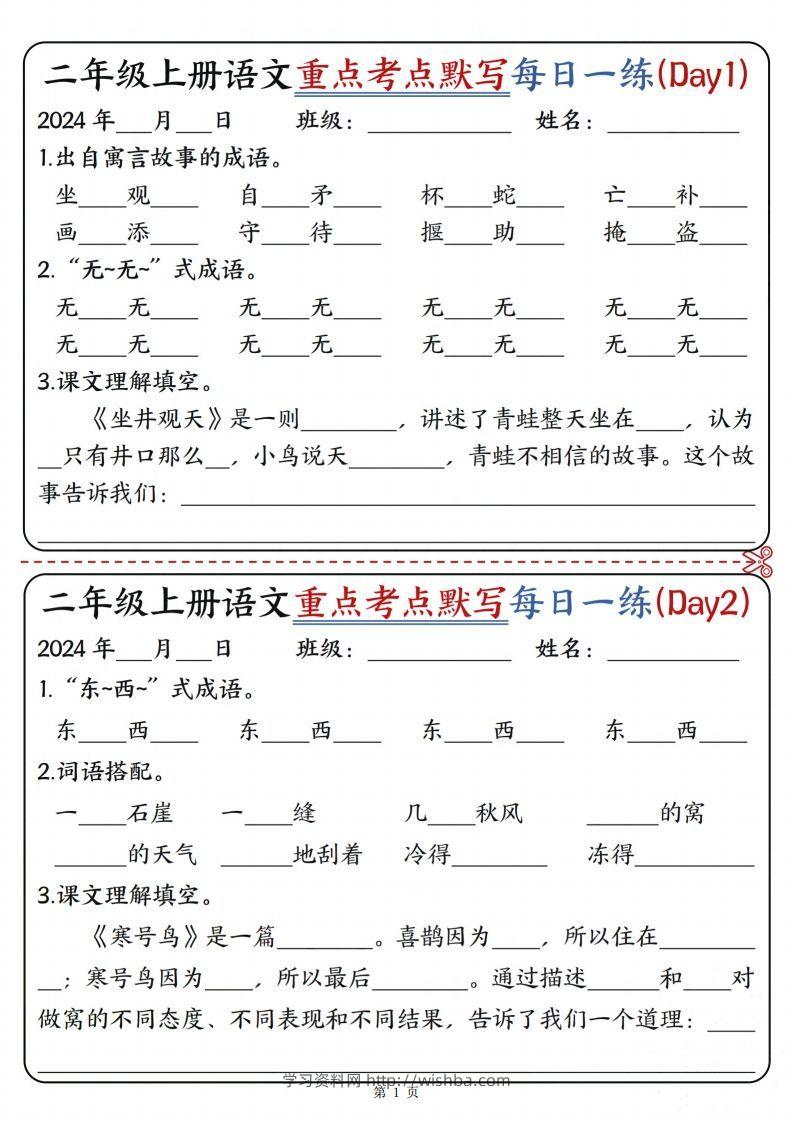 二年级上册语文重点考点默写每日一练(Day1)
2024 年___月___日 班级：____________ 姓名：___________
1.出自寓言故事的成语。
坐____观____ 自____矛____ 杯____蛇____ 亡____补____
画____添____ 守____待____ 揠____助____ 掩____盗____
2.“无~无~”式成语。
无____无____ 无____无____ 无____无____ 无____无____
无____无____ 无____无____ 无____无____ 无____无____
3.课文理解填空。
《坐井观天》是一则________，讲述了青蛙整天坐在____，认为
__只有井口那么__，小鸟说天________，青蛙不相信的故事。这个故
事告诉我们：________________________________________________
____________________________________________________________
二年级上册语文重点考点默写每日一练(Day2)
2024 年___月___日 班级：____________ 姓名：___________
1.“东~西~”式成语。
东____西____ 东____西____ 东____西____ 东____西____
2.词语搭配。
一____石崖 一____缝 几____秋风 ______的窝
______的天气 ______地刮着 冷得________ 冻得__________
3.课文理解填空。
《寒号鸟》是一篇________。喜鹊因为____，所以住在________
__；寒号鸟因为____，所以最后________。通过描述______和____对
做窝的不同态度、不同表现和不同结果，告诉了我们一个道理：____
____________________________________________________________
学习资料网 http://wishba.com
第 1 页